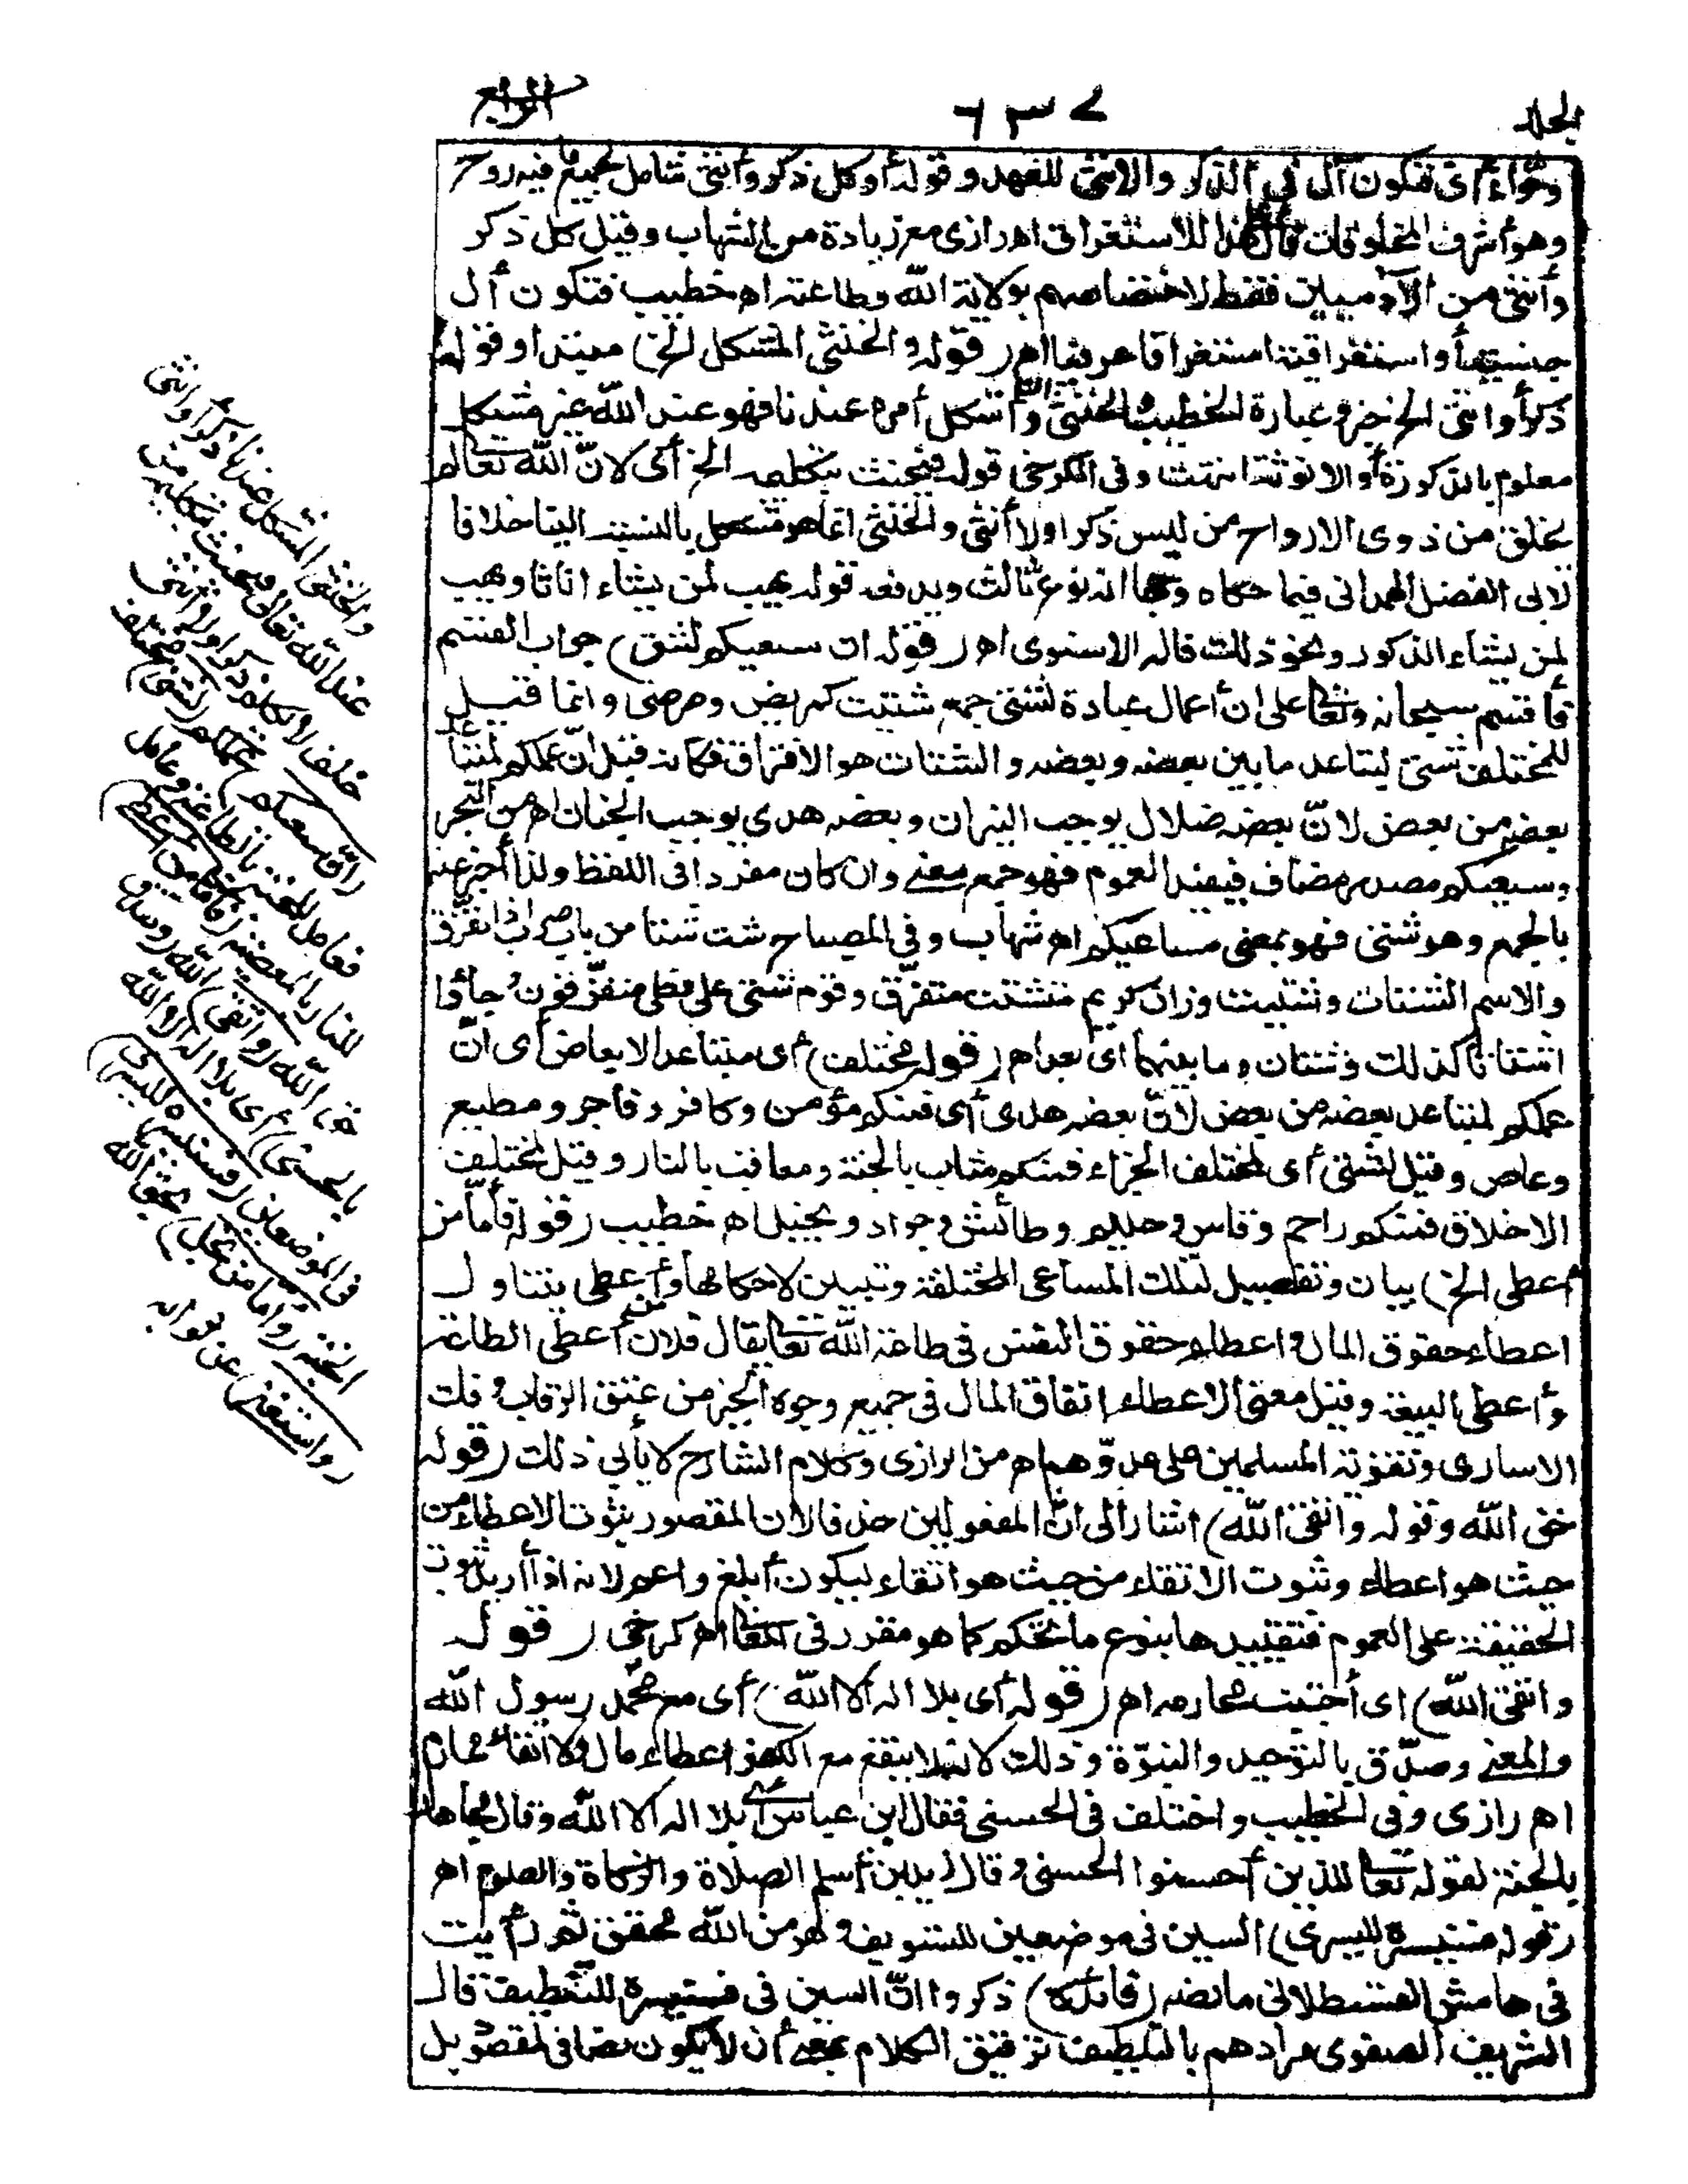 الجلد ٦٣٧ الرابع
وحواء أى فتكون أل فى الذكر والانثى للعهد وقوله أو كل ذكر وأنثى شامل لجميع ما فيه روح
وهو أشرف المخلوقات فأل على هذا للاستغراق اهـ رازى مع زيادة من الشهاب وقيل كل ذكر
وأنثى من الآدميين فقط لاختصاصهم بولاية الله وطاعته اهـ خطيب فتكون أل
جنسية أو استغراقية استغراقا عرفيا اهـ (قوله والخنثى المشكل الخ) مبتدا وقوله
ذكر أو انثى الخ خبر وعبارة الخطيب والخنثى وان أشكل أمره عندنا فهو عند الله غير مشكل
معلوم بالذكورة أو الانوثة انتهت وفى الكرخى قوله فيحنث بتكليمه الخ أى لانّ الله تعالى لم
يخلق من ذوى الارواح من ليس ذكرا ولا أنثى والخنثى انما هو مشكل بالنسبة الينا خلافا
لابى الفضل الهمدانى فيما حكاه وجها انه نوع ثالث ويدفعه قوله يهب لمن يشاء اناثا ويهب
لمن يشاء الذكور ونحو ذلك قاله الاسنوى اهـ (قوله ان سعيكم لشتى) جواب القسم
فأقسم سبحانه وتعالى على ان أعمال عباده لشتى جمع شتيت كمريض ومرضى وانما قيل
للمختلف شتى لتباعد ما بين بعضه وبعضه والشتات هو الافتراق فكانه قيل انّ عملكم لمتباعد
بعضه من بعض لانّ بعضه ضلال يوجب النيران وبعضه هدى يوجب الجنان اهـ من البحر
وسعيكم مصدر مضاف فيفيد العموم فهو جمع معنى وان كان مفردا فى اللفظ ولذا أخبر عنه
بالجمع وهو شتى فهو بمعنى مساعيكم اهـ شهاب وفى المصباح شت شتا من باب ضرب اذا تفرّق
والاسم الشتات وشتيت وزان كريم متشتت متفرّق وقوم شتى على فعلى متفرّقون وجاؤا
اشتاتا كذلك وشتان ما بينهما أى بعد اهـ (قوله مختلف) أى متباعد الابعاض أى انّ
عملكم لمتباعد بعضه من بعض لانّ بعضه هدى أى فمنكم مؤمن وكافر وفاجر ومطيع
وعاص وقيل لشتى أى لمختلف الجزاء فمنكم مثاب بالجنة ومعاقب بالنار وقيل لمختلف
الاخلاق فمنكم راحم وقاس وحليم وطائش وجواد وبخيل اهـ خطيب (قوله فأمّا من
أعطى الخ) بيان وتفصيل لتلك المساعى المختلفة وتبيين لاحكامها وأعطى يتناول
اعطاء حقوق المال واعطاء حقوق النفس فى طاعة الله تعالى يقال فلان أعطى الطاعة
وأعطى البيعة وقيل معنى الاعطاء انفاق المال فى جميع وجوه الخير من عتق الرقاب وفك
الاسارى وتقوية المسلمين على عدوّهم اهـ من الرازى وكلام الشارح لا يأبى ذلك (قوله
حق الله وقوله واتقى الله) اشار الى انّ المفعولين حذفا لان المقصود ثبوت الاعطاء من
حيث هو اعطاء وثبوت الاتقاء من حيث هو اتقاء ليكون أبلغ وأعم لانه اذا أريد ثبوت
الحقيقة على العموم فتقييدها بنوع ما تحكم كما هو مقرر فى اهـ كرخى (قوله
واتقى الله) اى أجتنب محارمه اهـ (قوله أى بلا اله الا الله) أى مع محمد رسول الله
والمعنى وصدّق بالتوحيد والنبوّة وذلك لانه لا ينفع مع الكفر اعطاء مال ولا اتقاء محارم
اهـ رازى وفى الخطيب واختلف فى الحسنى فقال ابن عباس أى بلا اله الا الله وقال مجاهد
بالجنة لقوله تعالى للذين أحسنوا الحسنى وقال زيد بن أسلم الصلاة والزكاة والصوم اهـ
(قوله فسنيسره لليسرى) السين فى موضعين للتسويف وهو من الله محقق ثم رأيت
فى هامش القسطلانى ما نصه (فائدة) ذكروا انّ السين فى فسنيسره للتلطيف قال
الشريف الصفوى مرادهم بالتلطيف ترقيق الكلام بمعنى أن لا يكون نصا فى المقصود بل
والخنثى المشكل عندنا ذكر أو انثى
عند الله تعالى فيحنث بتكليمه من
حلف لا يكلم ذكرا ولا انثى
(انّ سعيكم) عملكم (لشتى) مختلف
فعامل للجنة بالطاعة وعامل
للنار بالمعصية (فأما من أعطى)
حق الله (واتقى) الله (وصدق
بالحسنى) أى بلا اله الا الله
فى الموضعين (فسنيسره لليسرى)
للجنة (وأما من بخل) بحق الله
(واستغنى) عن ثوابه